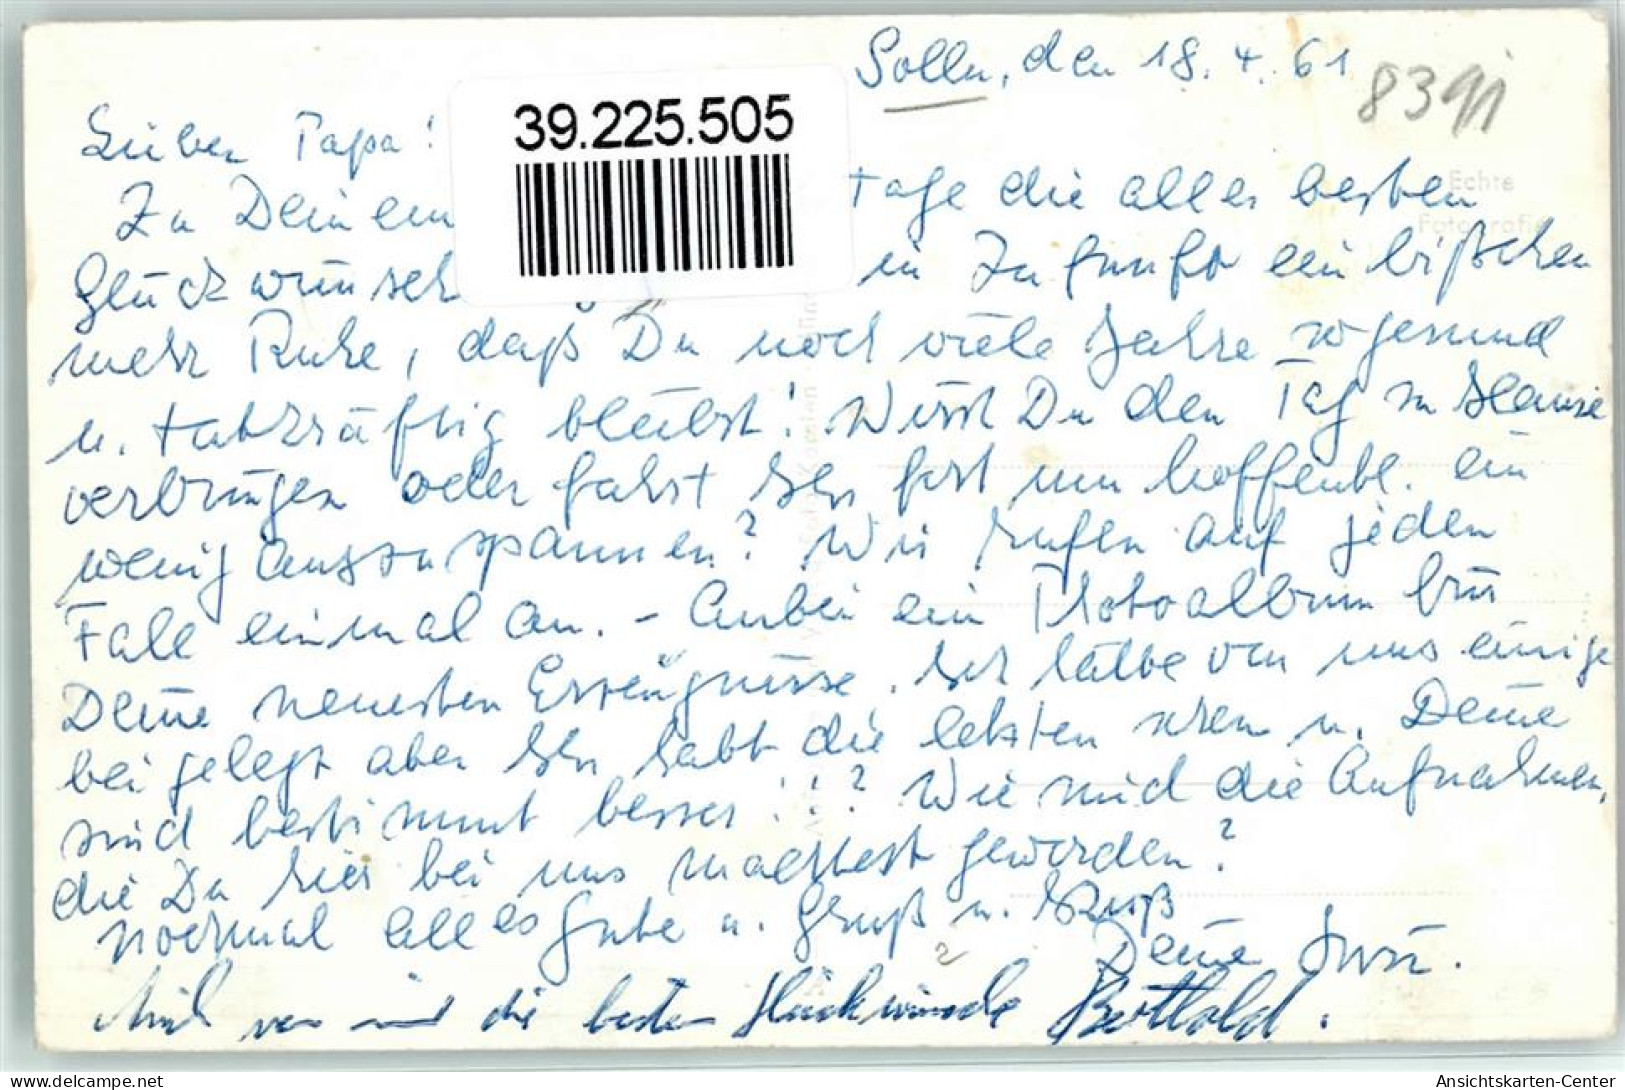 Solln, den 18.4.61
839
39.225.505
Echte
Fotografie
Lieber Papa!
Zu Deinem tage die alles besten
Glückwünsch in Zukunft ein bißchen
mehr Ruhe, daß Du noch viele Jahre so gesund
u. tatkräftig bleibst! Wirst Du den Tag zu Hause
verbringen oder fahrt Ihr fort um hoffentl. ein
wenig auszuspannen? Wir rufen auf jeden
Fall einmal an. - Anbei ein Photoalbum für
Deine neuesten Erzeugnisse. Ich hätte von uns einige
beigelegt aber Ihr habt die letzten u. Deine
sind bestimmt besser!!? Wie sind die Aufnahmen,
die Du hier bei uns machtest geworden?
Nochmal alles Gute u. Gruß u. Kuß
Deine
Auch von mir die besten Glückwünsche Berthold.
delcampe.net
Ansichtskarten-Center